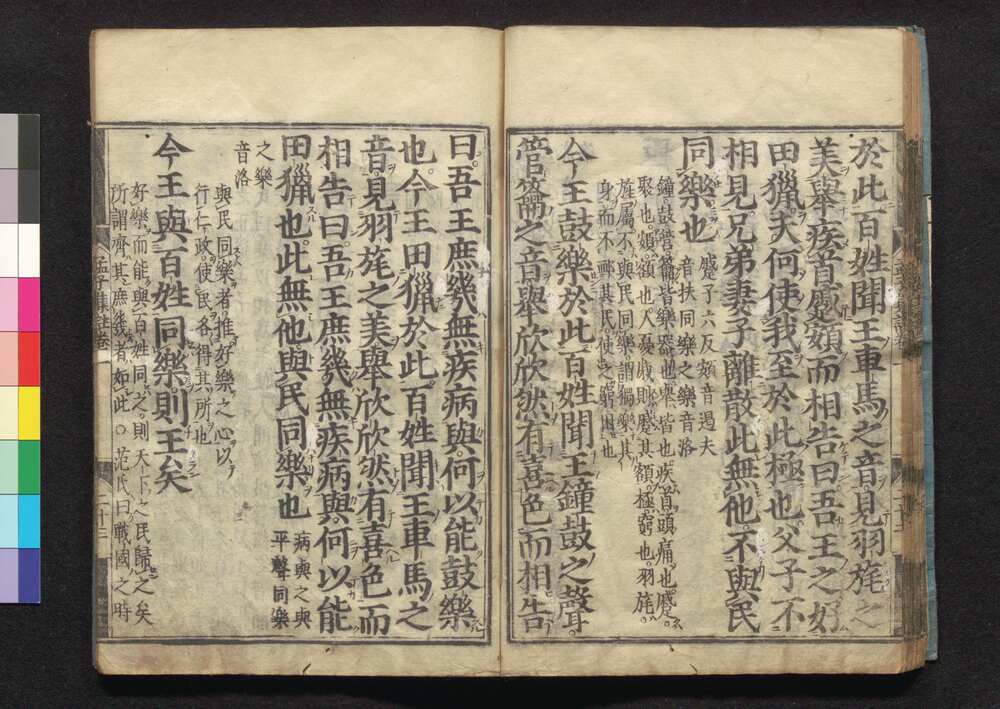 於此百姓聞王車馬之音見羽旄之
美舉疾首蹙頞而相告曰吾王之好
田獵夫何使我至於此極也父子不
相見兄弟妻子離散此無他不與民
同樂也
蹙子六反頞音遏夫
音扶同樂之樂音洛
鐘鼓管籥皆樂器也舉皆也疾首頭痛也蹙
聚也頞額也人憂戚則蹙其額極窮也羽旄
旌屬不與民同樂謂獨樂其
身而不卹其民使之窮困也
今王鼓樂於此百姓聞王鐘鼓之聲
管籥之音舉欣欣然有喜色而相告
曰吾王庶幾無疾病與何以能鼓樂
也今王田獵於此百姓聞王車馬之
音見羽旄之美舉欣欣然有喜色而
相告曰吾王庶幾無疾病與何以能
田獵也此無他與民同樂也
病與之與
平聲同樂
之樂
音洛
與民同樂者推好樂之心以
行仁政使民各得其所也
今王與百姓同樂則王矣
好樂而能與百姓同之則天下之民歸之矣
所謂齊其庶幾者如此○范氏曰戰國之時
孟子集註卷
二十三